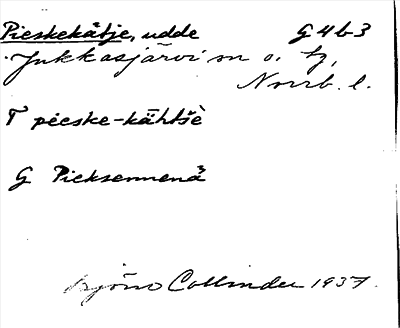 Pieskekåtje, udde G4b3
Jukkasjärvi sn o. tg,
Norrb. l.
T pèeske-kåhtšè
G Pieksennenä
Björn Collinder 1937.